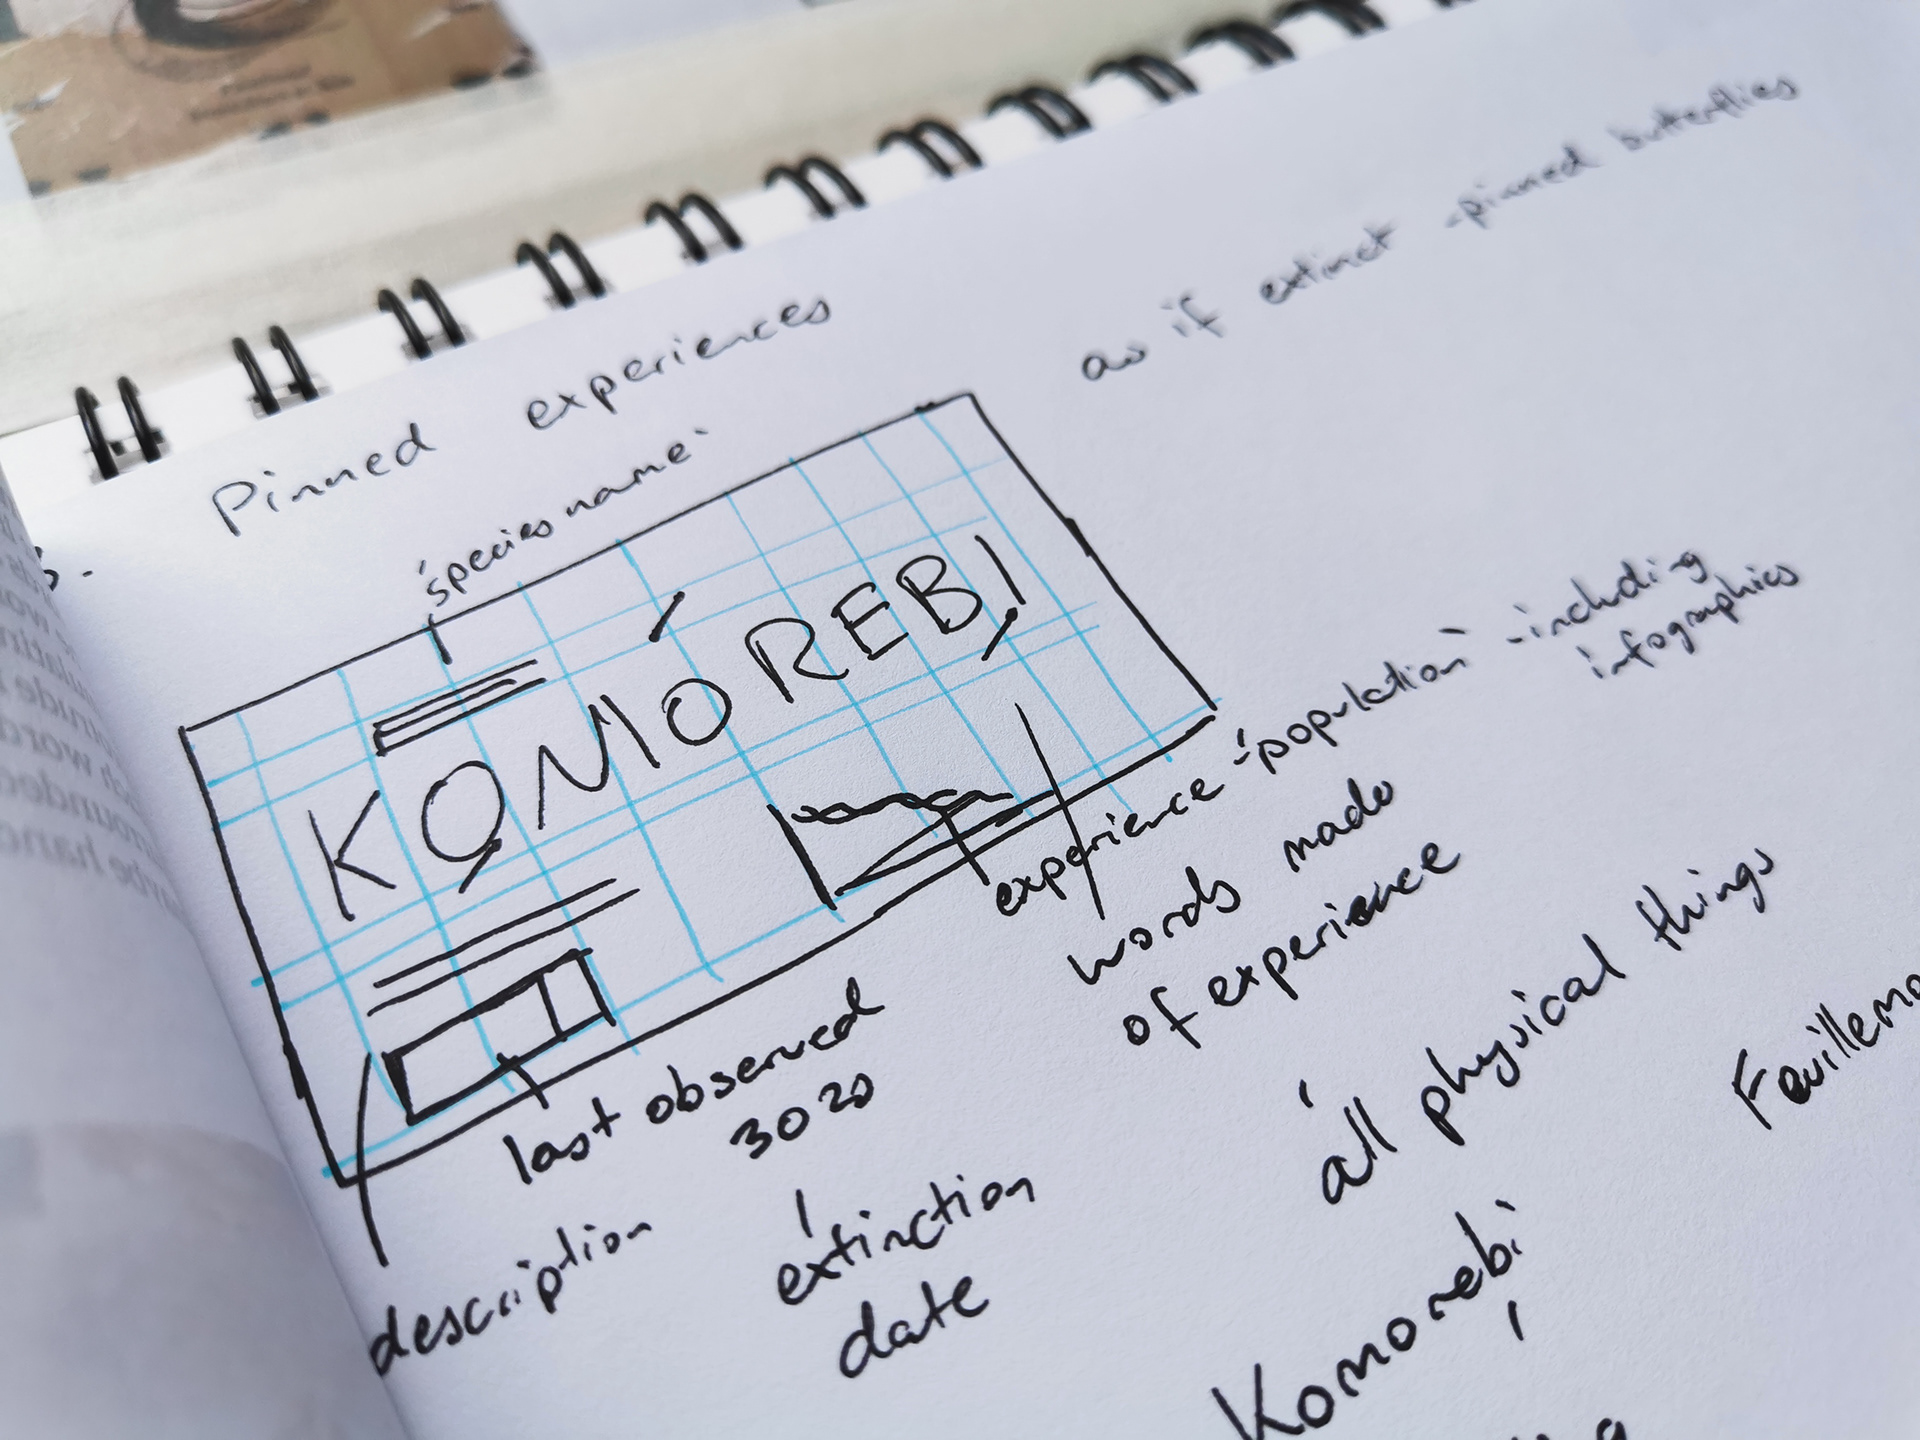 Pinned experiences
as if extinct - pinned butterflies
'species name'
KOMOREBI
experience 'population' - including
infographics
words made
of experience
last observed
3020
extinction
date
description
all physical things
Komorebi